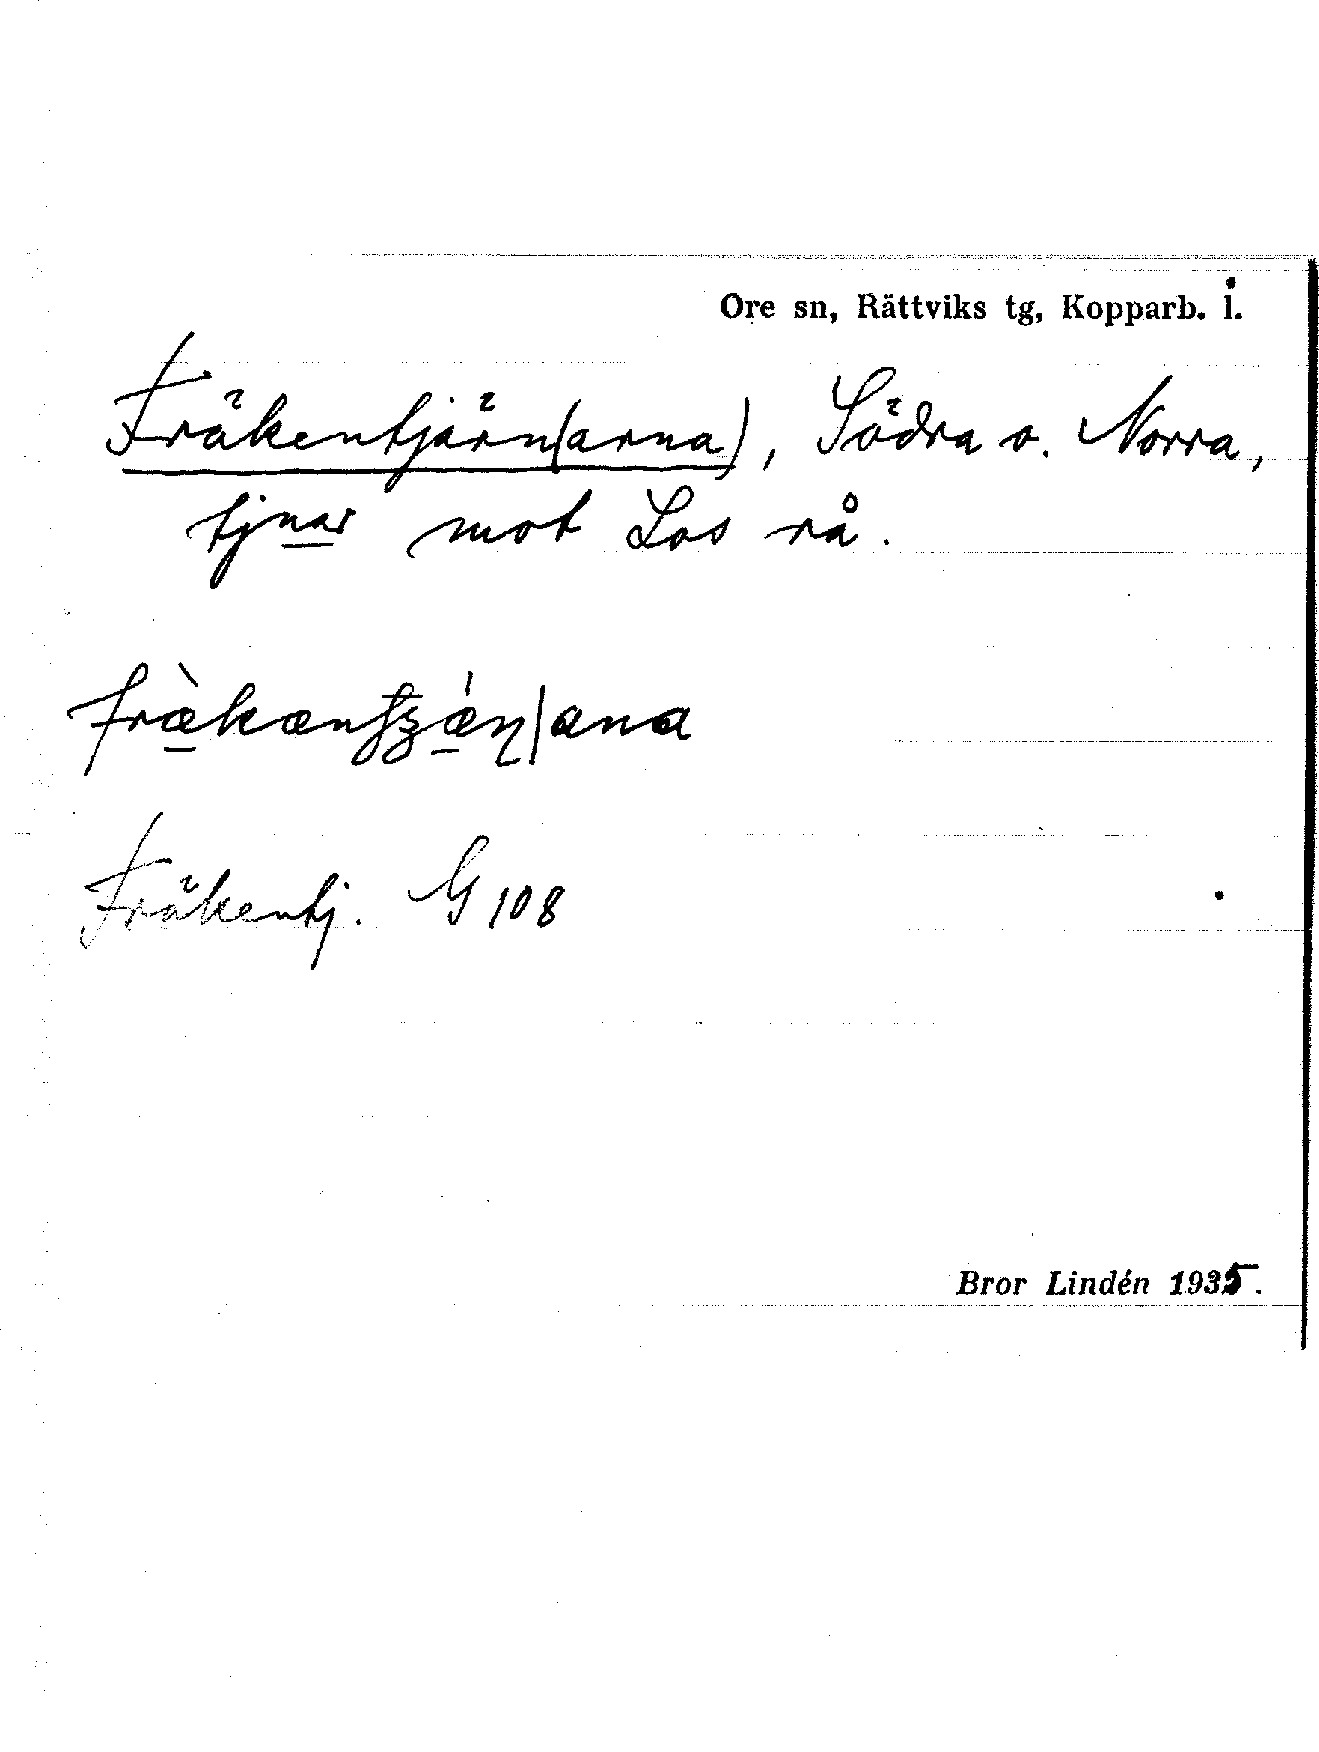 Ore sn, Rättviks tg, Kopparb. l.
Fräkentjärn(arna), Södra o. Norra,
tjnar mot Los rå.
Fräkentj. G 108
Bror Lindén 1935.